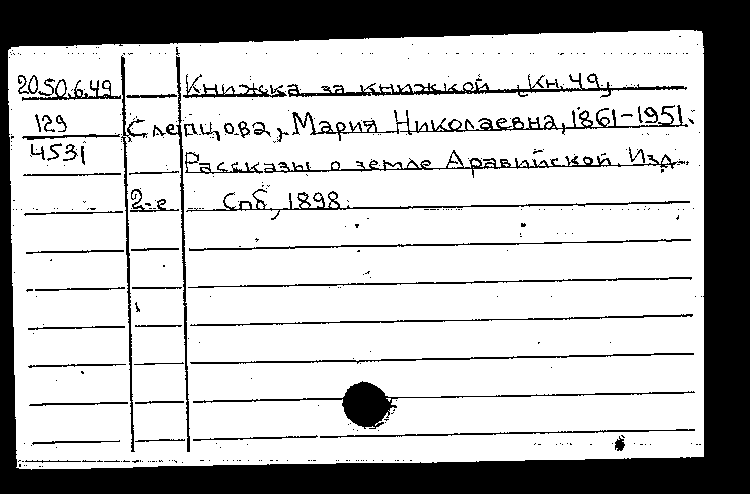 20.50.6.49 Книжка за книжкой [Кн. 49]
129 Слепцова, Мария Николаевна, 1861-1951.
4531 Рассказы о земле Аравийской. Изд.
2-е Спб, 1898.